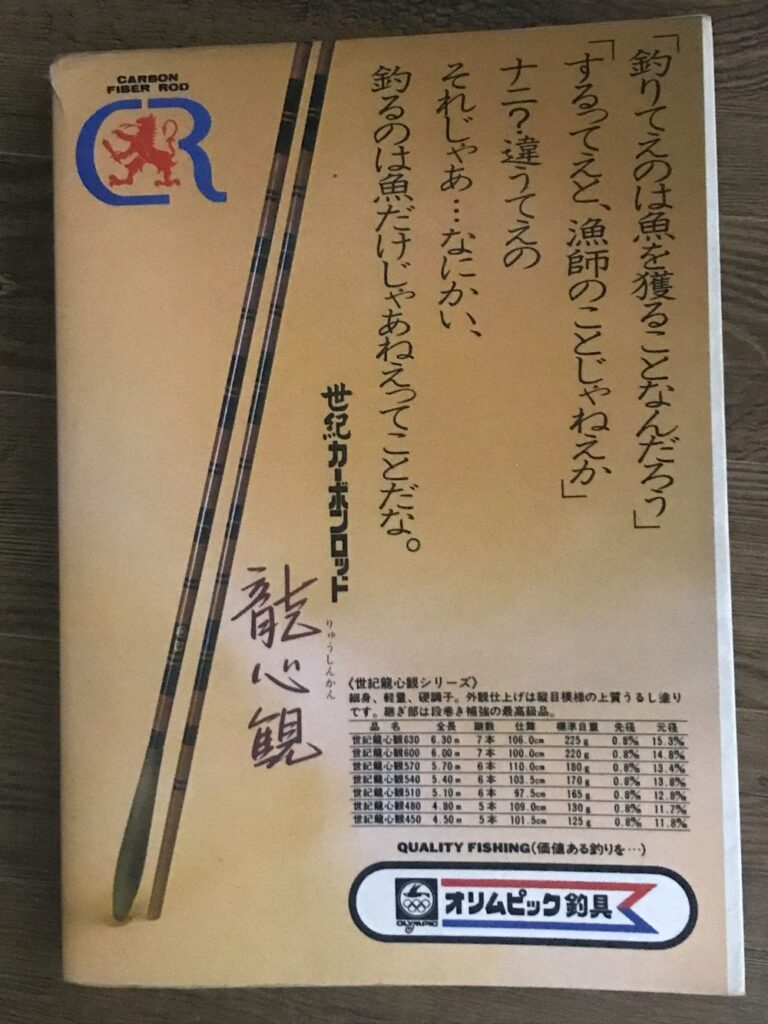 CARBON
FIBER ROD
CR
「釣りてえのは魚を獲ることなんだろう」
「するってえと、漁師のことじゃねえか」
ナニ?違うてえの
それじゃあ…なにかい、
釣るのは魚だけじゃあねえってことだな。
世紀カーボンロッド
龍心観
りゅうしんかん
〈世紀龍心観シリーズ〉
細身、軽量、硬調子。外観仕上げは縦目模様の上質うるし塗り
です。継ぎ部は段巻き補強の最高級品。
品名 全長 継数 仕舞 標準自重 先径 元径
世紀龍心観630 6.30m 7本 106.0cm 225g 0.8% 15.3%
世紀龍心観600 6.00m 7本 100.0cm 220g 0.8% 14.8%
世紀龍心観570 5.70m 6本 110.0cm 180g 0.8% 13.4%
世紀龍心観540 5.40m 6本 103.5cm 170g 0.8% 13.8%
世紀龍心観510 5.10m 6本 97.5cm 165g 0.8% 12.8%
世紀龍心観480 4.80m 5本 109.0cm 130g 0.8% 11.7%
世紀龍心観450 4.50m 5本 101.5cm 125g 0.8% 11.8%
QUALITY FISHING(価値ある釣りを…)
OLYMPIC
オリムピック釣具